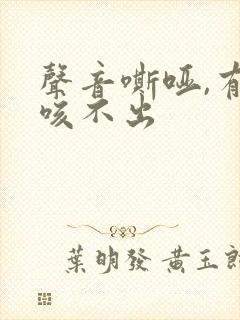 聲音嘶啞,有
咳不出
葉明發 黃玉郎